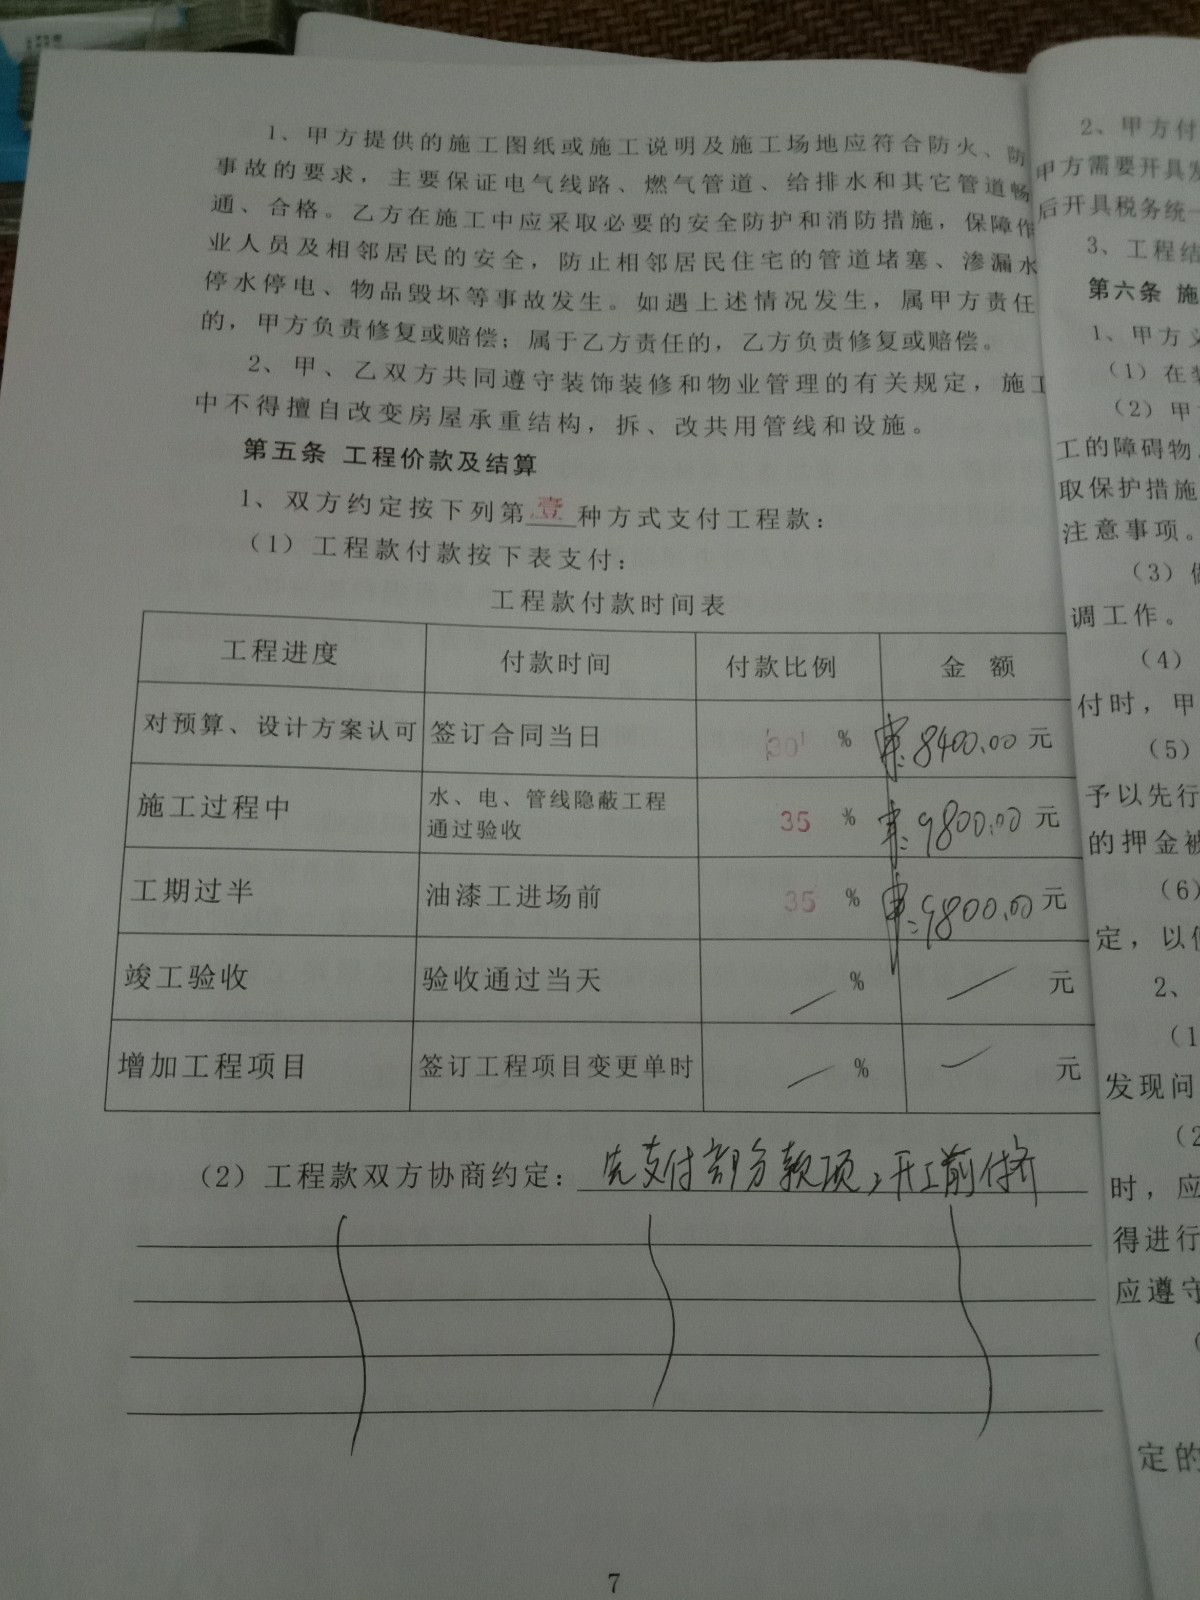 1、甲方提供的施工图纸或施工说明及施工场地应符合防火、防
事故的要求，主要保证电气线路、燃气管道、给排水和其它管道畅
通、合格。乙方在施工中应采取必要的安全防护和消防措施，保障作
业人员及相邻居民的安全，防止相邻居民住宅的管道堵塞、渗漏水
停水停电、物品毁坏等事故发生。如遇上述情况发生，属甲方责任
的，甲方负责修复或赔偿；属于乙方责任的，乙方负责修复或赔偿。
2、甲、乙双方共同遵守装饰装修和物业管理的有关规定，施工
中不得擅自改变房屋承重结构，拆、改共用管线和设施。
第五条 工程价款及结算
1、双方约定按下列第壹种方式支付工程款：
（1）工程款付款按下表支付：
工程款付款时间表
工程进度 付款时间 付款比例 金 额
对预算、设计方案认可 签订合同当日 30 % 8400.00 元
施工过程中 水、电、管线隐蔽工程 35 % 9800.00 元
通过验收
工期过半 油漆工进场前 35 % 9800.00 元
竣工验收 验收通过当天 % 元
增加工程项目 签订工程项目变更单时 % 元
（2）工程款双方协商约定：先支付部分款项，开工前付齐
7
2、甲方付
甲方需要开具发
后开具税务统一
3、工程结
第六条 施
1、甲方义
（1）在
（2）甲
工的障碍物
取保护措施
注意事项。
（3）做
调工作。
（4）
付时，甲
（5）
予以先行
的押金被
（6）
定，以
2、
（1
发现问
（2
时，应
得进行
应遵守
定的